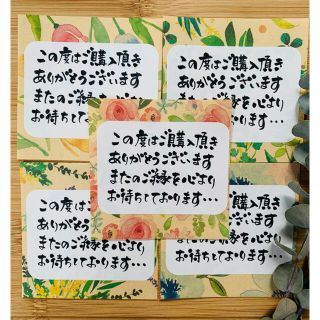 この度はご購入頂き
ありがとうございます
またのご縁を心より
お待ちして
この度はご購入頂き
ありがとうございます
またのご縁を心より
お待ちしております・・・
この度はご購入頂き
ありがとうございます
またのご縁を心より
お待ちしております・・・
この度は
ありがとう
またのご縁を心より
お待ちしております・・・
お待ちしております・・・